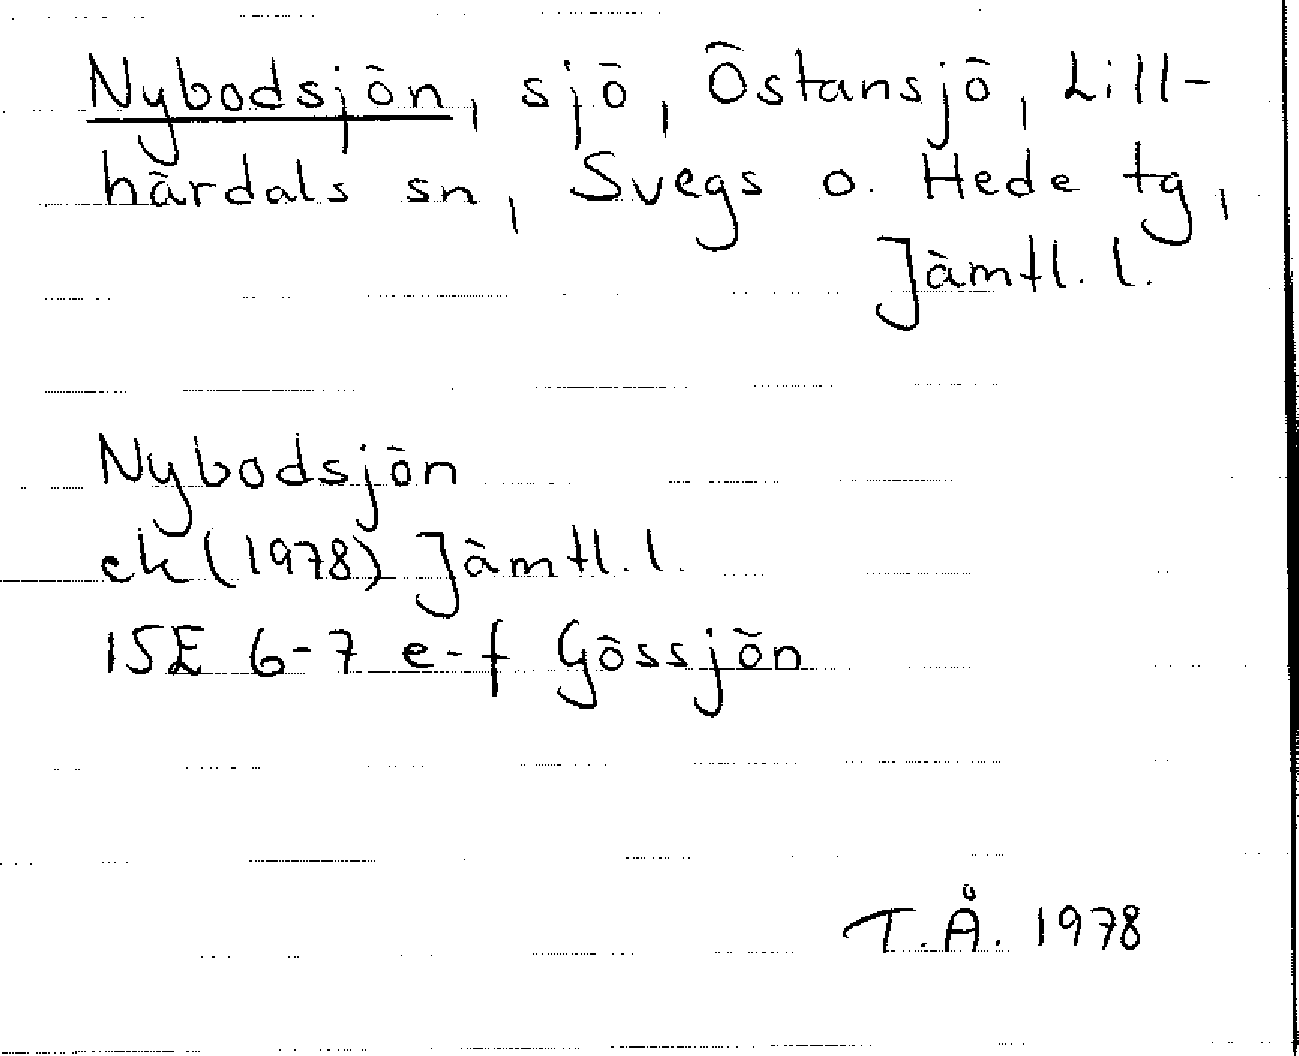 Nybodsjön, sjö, Östansjö, Lill-
härdals sn, Svegs o. Hede tg,
Jämtl. l.
Nybodsjön
ek (1978) Jämtl. l.
15E 6-7 e-f Gössjön
T.Å. 1978